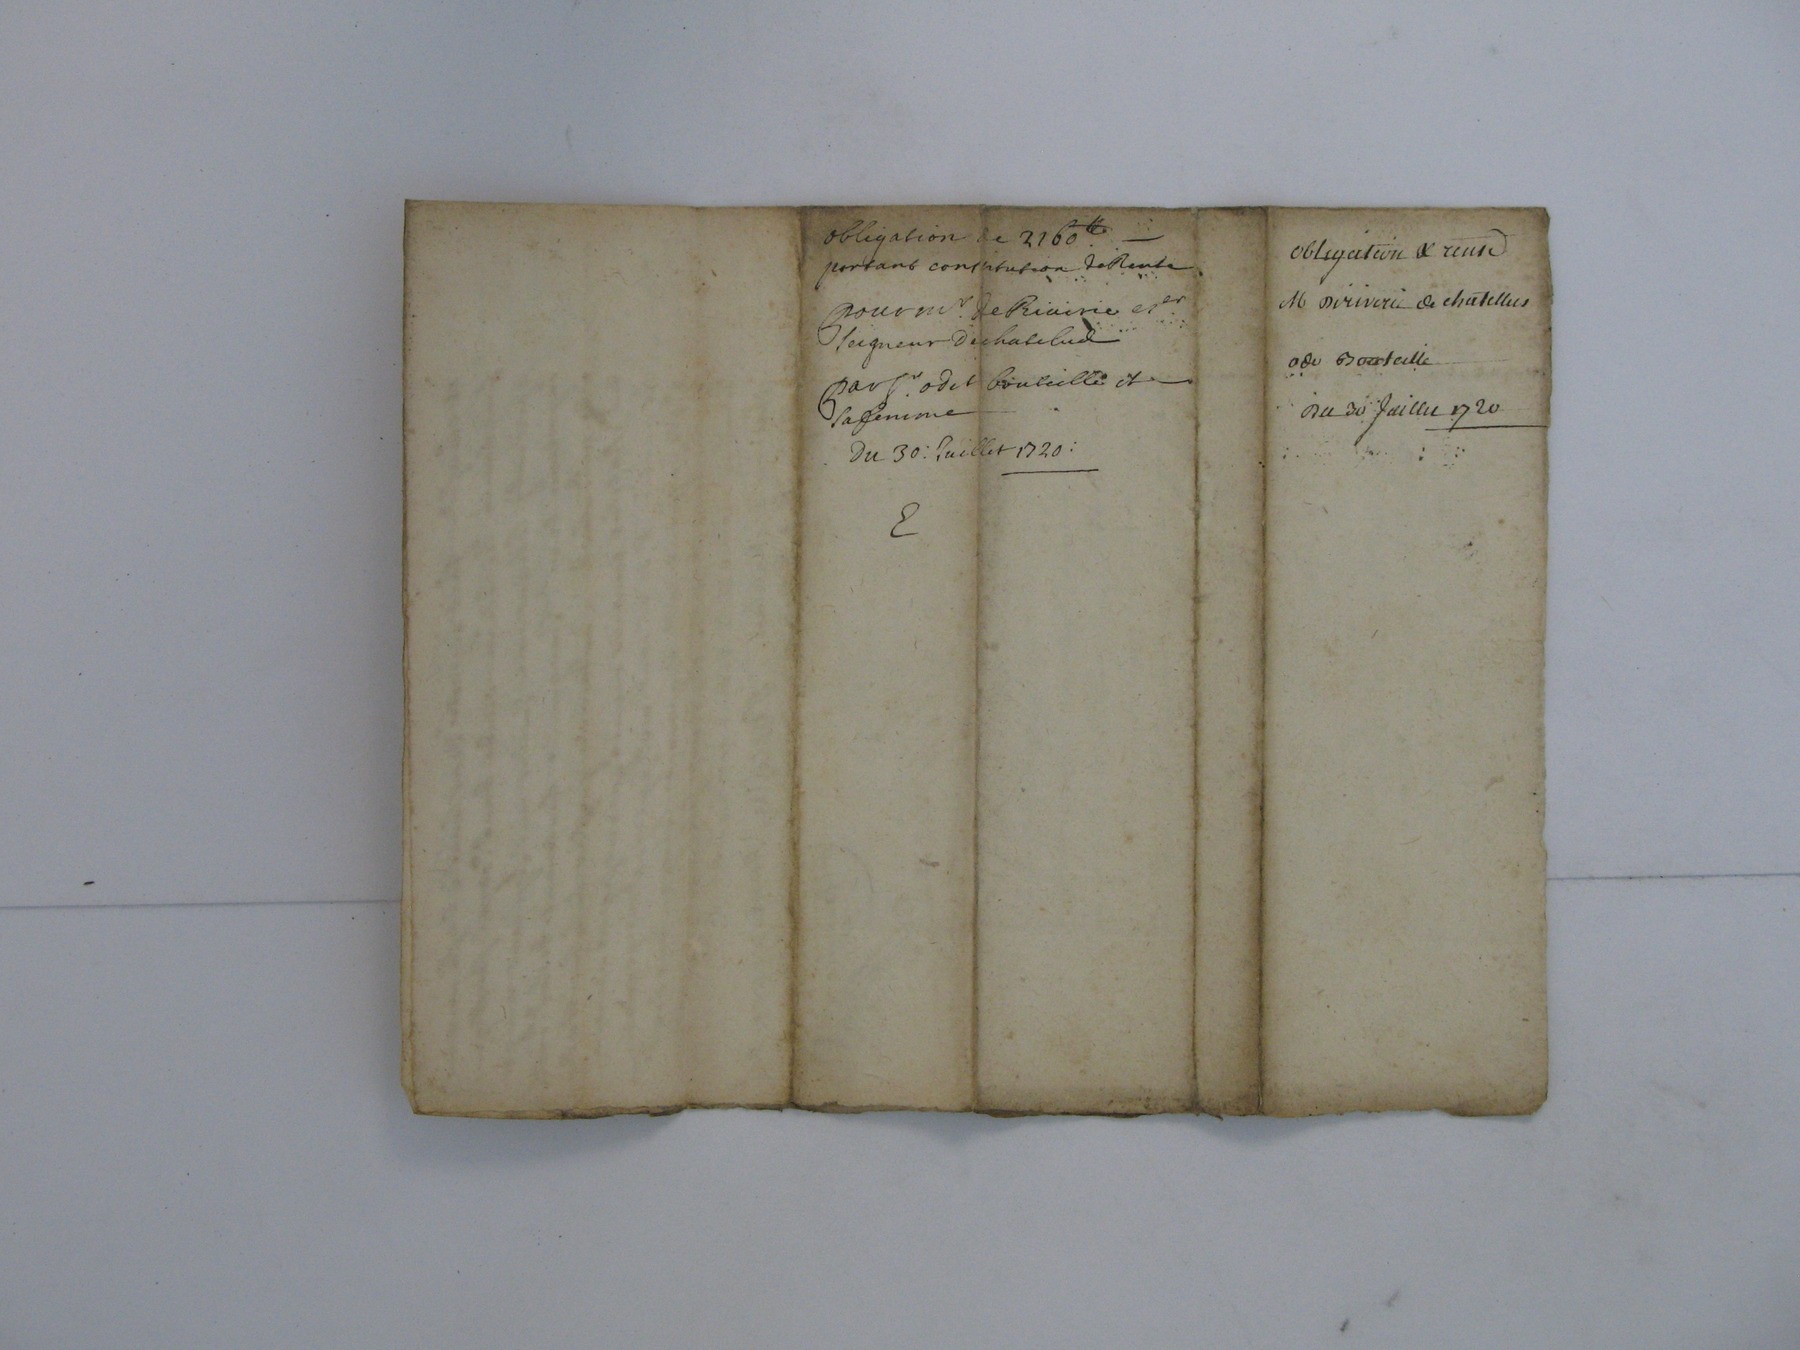 obligation de 2160 tt
portant constitution de Rente
pour mr. de Riuirie er
seigneur de chatelud
par sr. odet bouteille et
sa femme
Du 30: Juillet 1720:
obligation & rente
M de riverie de chatellus
ode Bouteille
Du 30 Juillet 1720